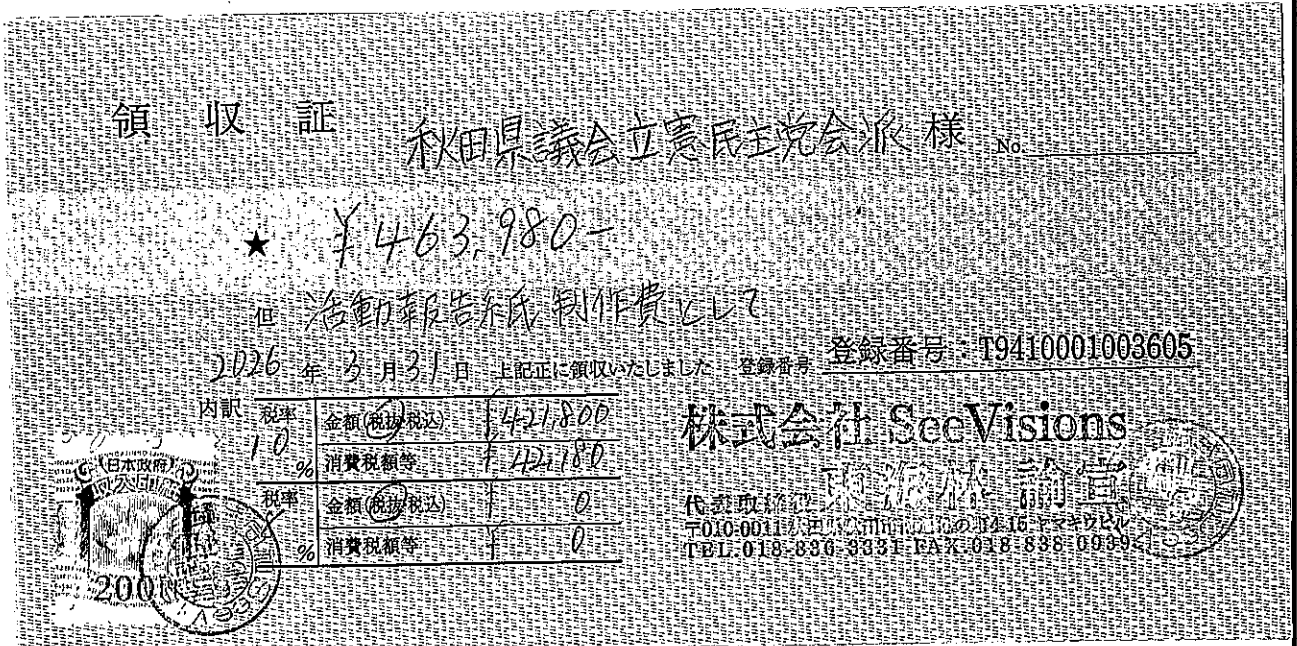 領収証 秋田県議会立憲民主党会派 様 No.
★ ¥463,980-
但 活動報告紙制作費として
2026年3月31日 上記正に領収いたしました 登録番号 登録番号:T9410001003605
内訳 税率 10% 金額(税抜税込) ¥421,800
消費税額等 ¥42,180
税率 % 金額(税抜税込) ¥0
消費税額等 ¥0
株式会社 SeeVisions
代表取締役
〒010-0011
ヤマキウビル
TEL.018-836-3331 FAX.018-838-0939
日本政府
収入印紙
200